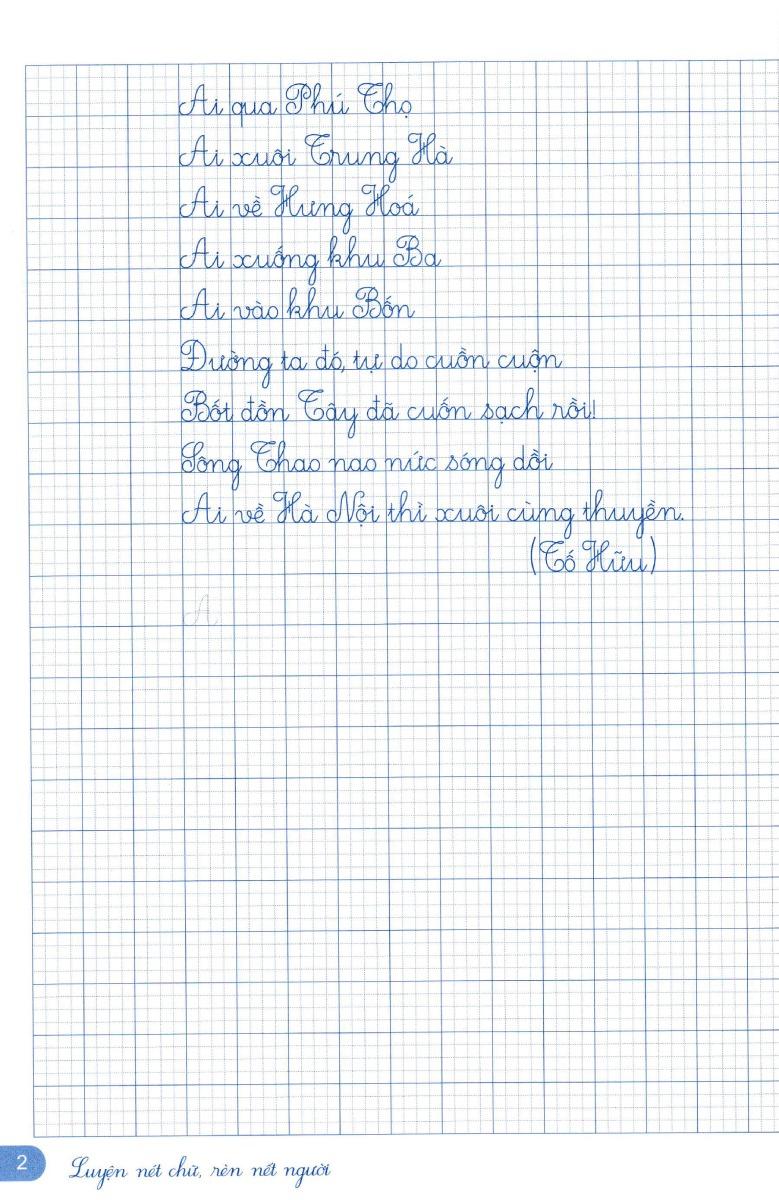 Ai qua Phú Thọ
Ai xuôi Trung Hà
Ai về Hưng Hoá
Ai xuống khu Ba
Ai vào khu Bốn
Đường ta đó, tự do cuồn cuộn
Bốt đồn Tây đã cuốn sạch rồi!
Sông Thao nao nức sóng dồi
Ai về Hà Nội thì xuôi cùng thuyền.
(Tố Hữu)
A
2
Luyện nét chữ, rèn nết người